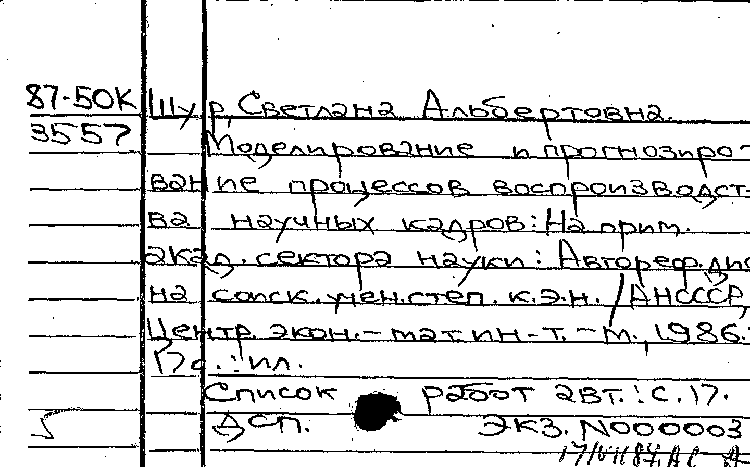 87-50К Шур, Светлана Альбертовна.
3557 Моделирование и прогнозиро-
вание процессов воспроизводст-
ва научных кадров: На прим.
акад. сектора науки: Автореф. дис
на соиск. учен. степ. к.э.н. / АНСССР,
Центр. экон.-мат. ин-т. - М., 1986.
с.: ил.
Список работ авт.: с. 17.
ДСП. ЭКЗ. N000003